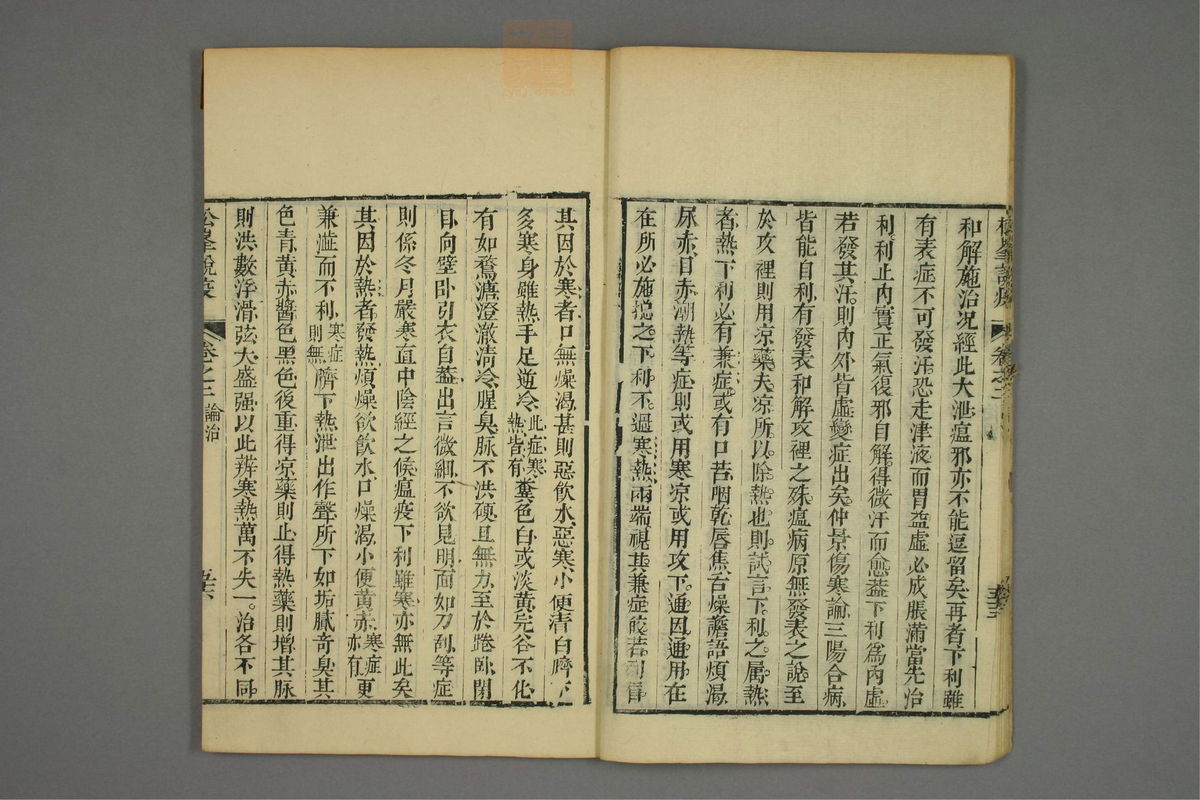 和解施治况經此大泄瘟邪亦不能逗留矣再者下利雖
有表症不可發汗恐走津液而胃益虛必成脹滿當先治
利利止內實正氣復邪自解得微汗而愈蓋下利爲內虛
若發其汗則內外皆虛變症出矣仲景傷寒論三陽合病
皆能自利有發表和解攻裡之殊瘟病原無發表之說至
於攻裡則用凉藥夫凉所以除熱也則試言下利之屬熱
者熱下利必有兼症或有口苦咽乾唇焦舌燥譫語煩渴
尿赤目赤潮熱等症則或用寒凉或用攻下通因通用在
在所必施揔之下利不過寒熱兩端視其兼症皎若列眉
其因於寒者口無燥渴甚則惡飲水惡寒小便清白臍下
多寒身雖熱手足逆冷此症寒熱皆有糞色白或淡黄完谷不化
有如鶩溏澄澈清冷腥臭脉不洪硬且無力至於踡卧閉
目向壁卧引衣自蓋出言微細不欲見明面如刀刮等症
則係冬月嚴寒直中陰經之候瘟疫下利雖寒亦無此矣
其因於熱者發熱煩燥欲飲水口燥渴小便黄赤寒症亦有更
兼澁而不利寒症則無臍下熱泄出作聲所下如垢膩奇臭其
色青黄赤醬色黑色後重得凉藥則止得熱藥則增其脉
則洪數浮滑弦大盛强以此辨寒熱萬不失一治各不同
松峯說疫
卷之三
論治
五六